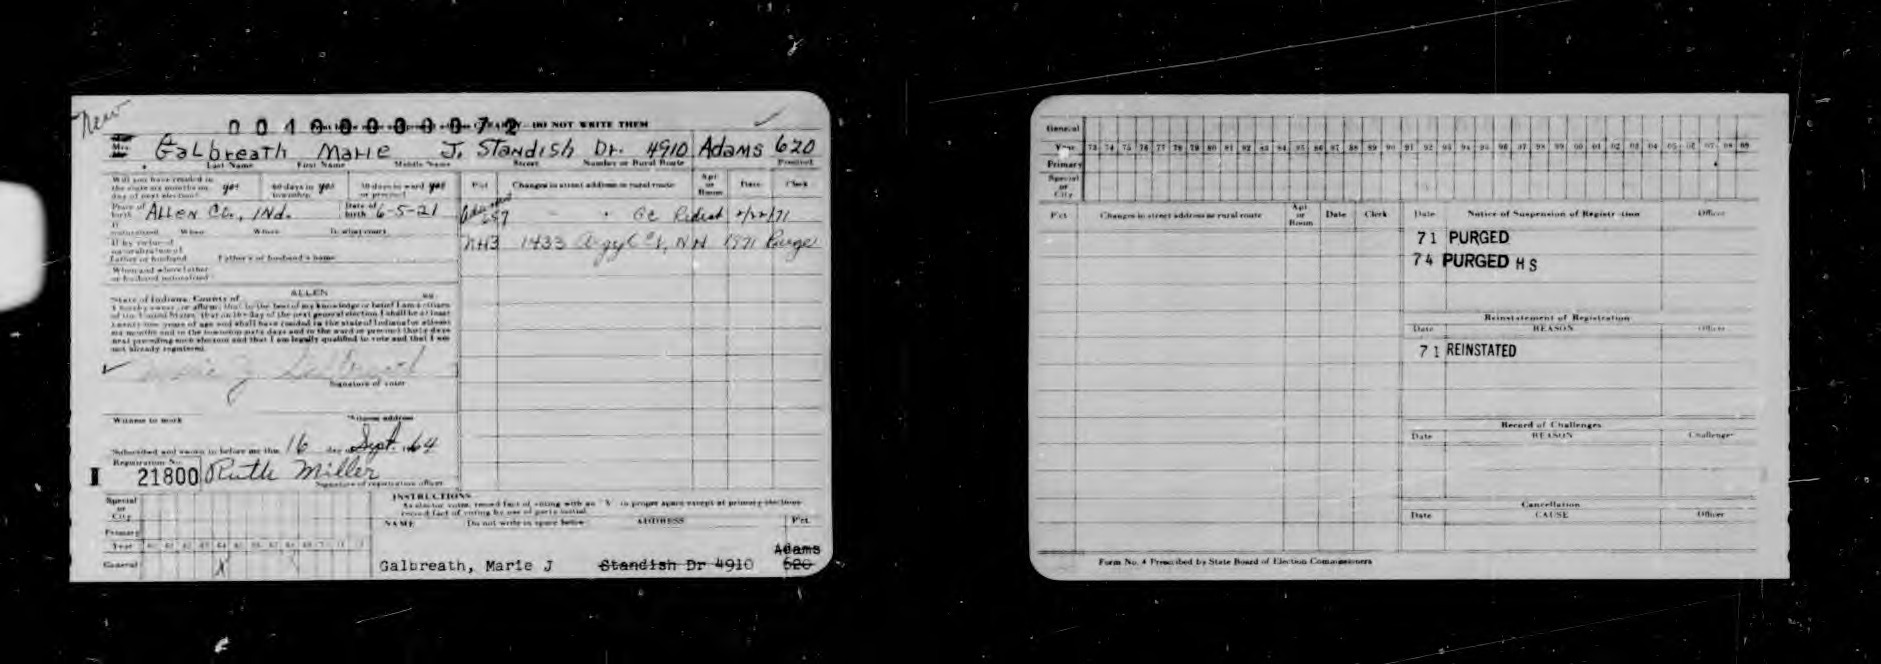 New
0010000000072
CLEARLY - DO NOT WRITE THEM
Galbreath Marie J. Standish Dr. 4910 Adams 620
Last Name First Name Middle Name Street Number or Rural Route Precinct
Will you have resided in
the state six months on yes 60 days in yes 30 days in ward yes
day of next election? township or precinct
Pct Changes in street address or rural route Apt or Room Date Clerk
Place of birth Allen Co., Ind. Date of birth 6-5-21
657 Redist 2/22/71
If naturalized When Where In what court
NH3 1433 Argyle Ct, NH 1971 Purge
If by virtue of
naturalization of
Father or husband Father's or husband's name
When and where father
or husband naturalized
State of Indiana, County of ALLEN ss:
I hereby swear or affirm that to the best of my knowledge or belief I am a citizen
of the United States, that on the day of the next general election I shall be at least
twenty-one years of age and shall have resided in the state of Indiana for at least
six months and in the township sixty days and in the ward or precinct thirty days
next preceding such election and that I am legally qualified to vote and that I am
not already registered.
Marie J Galbreath
Signature of voter
Witness to mark Witness address
Subscribed and sworn to before me this 16 day of Sept. 1964
Registration No.
I 21800 Ruth Miller
Signature of registration officer
INSTRUCTIONS
As elector votes, record fact of voting with an "X" in proper space except at primary elections
record fact of voting by use of party initial.
NAME Do not write in space below ADDRESS Pct.
Special
or
City
Primary
Year
General X
Adams
Galbreath, Marie J Standish Dr 4910 620
General
Year 73 74 75 76 77 78 79 80 81 82 83 84 85 86 87 88 89 90 91 92 93 94 95 96 97 98 99 00 01 02 03 04 05 06 07 08 09
Primary
Special
or
City
Pct Changes in street address or rural route Apt or Room Date Clerk Date Notice of Suspension of Registration Officer
71 PURGED
74 PURGED HS
Reinstatement of Registration
Date REASON Officer
71 REINSTATED
Record of Challenges
Date REASON Challenger
Cancellation
Date CAUSE Officer
Form No. 4 Prescribed by State Board of Election Commissioners